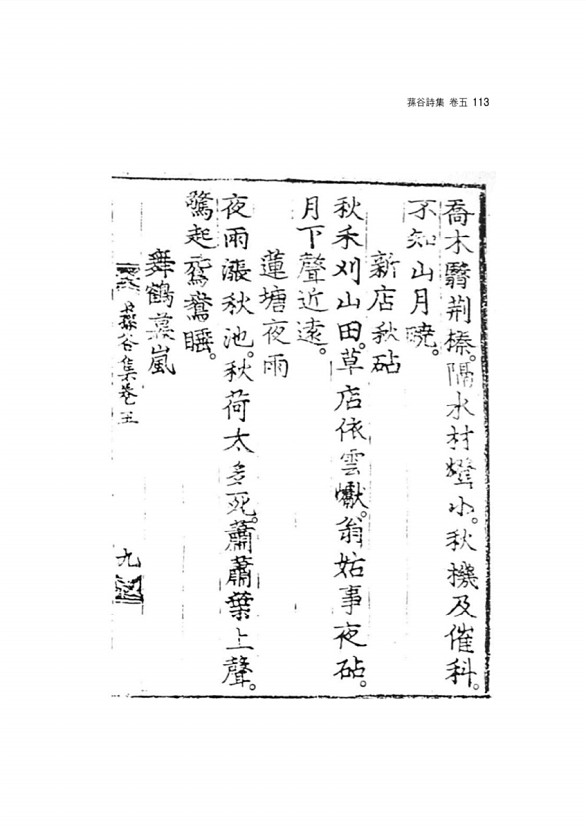 蓀谷詩集 卷五 113
喬木翳荆榛。隔水材燈小。秋機及催科。
不知山月曉。
新店秋砧
秋禾刈山田。草店依雲巘。翁姑事夜砧。
月下聲近遠。
蓮塘夜雨
夜雨漲秋池。秋荷太多死。蕭蕭葉上聲。
驚起鴛鴦睡。
舞鶴暮嵐
蓀谷集卷五
九